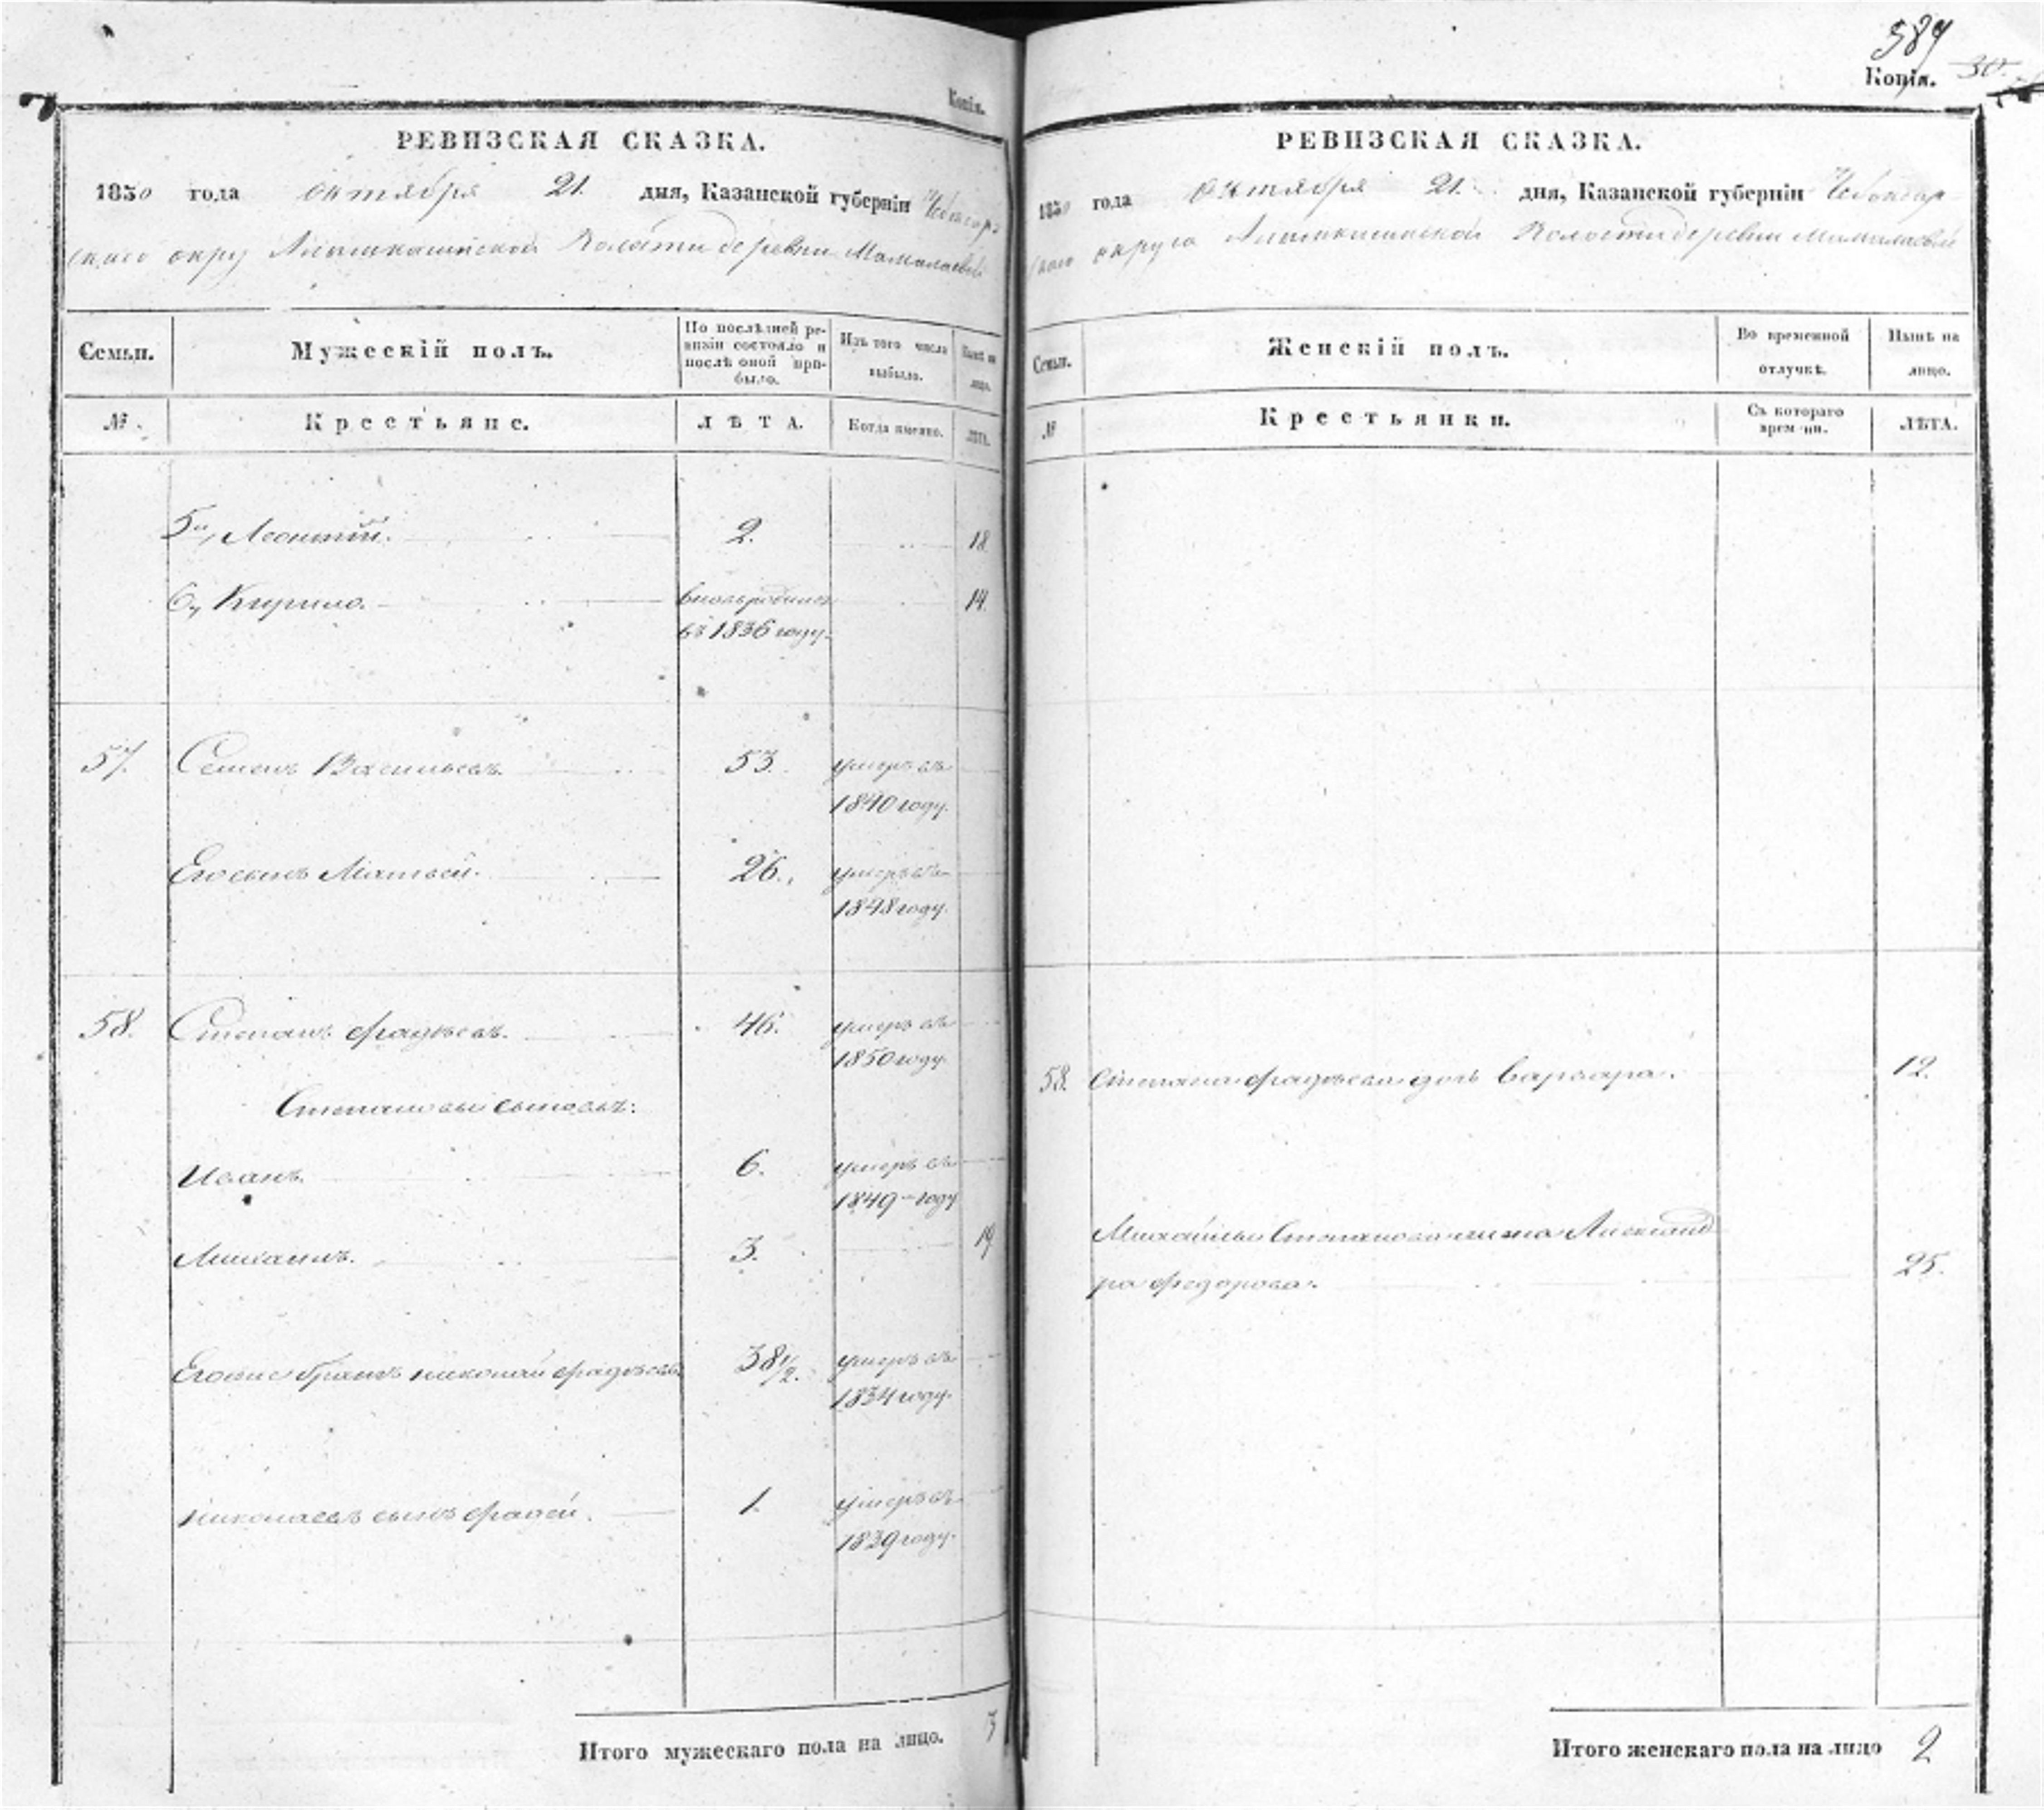 Копія.
РЕВИЗСКАЯ СКАЗКА.
1850 года октября 21. дня, Казанской губерніи Чебоксар
скаго окру Волости деревни
Семьи.
Мужескій полъ.
По послѣдней ре-
визіи состояло и
послѣ оной при-
было.
Изъ того числа
выбыло.
Нынѣ на
лицо.
№.
Крестьяне.
ЛѢТА.
Когда именно.
ЛѢТА.
5й, Леонтій. 2. 18
6й Кирило. 14.
въ 1836 году.
57. Семенъ Васильевъ. 53. умеръ въ
1840 году.
Его сынъ Матвей. 26. умеръ въ
1848 году.
58. Степанъ Фадѣевъ. 46. умеръ въ
1850 году.
Степановы сыновья:
Иванъ. 6. умеръ въ
1849 году
Михаилъ. 3. 19
братъ Николай Фадѣевъ 38 1/2. умеръ въ
1834 году.
Николаевъ сынъ Фадей. 1. умеръ въ
1839 году.
Итого мужескаго пола на лицо. 3
Копія.
РЕВИЗСКАЯ СКАЗКА.
1850 года октября 21. дня, Казанской губерніи Чебоксар
скаго округа Волости деревни
Семьи.
Женскій полъ.
Во временной
отлучкѣ.
Нынѣ на
лицо.
№
Крестьянки.
Съ котораго
времени.
ЛѢТА.
58. Степана Фадѣева дочь Варвара. 12.
Михайлы Степанова жена Александ
ра Федорова. 25.
Итого женскаго пола на лицо 2